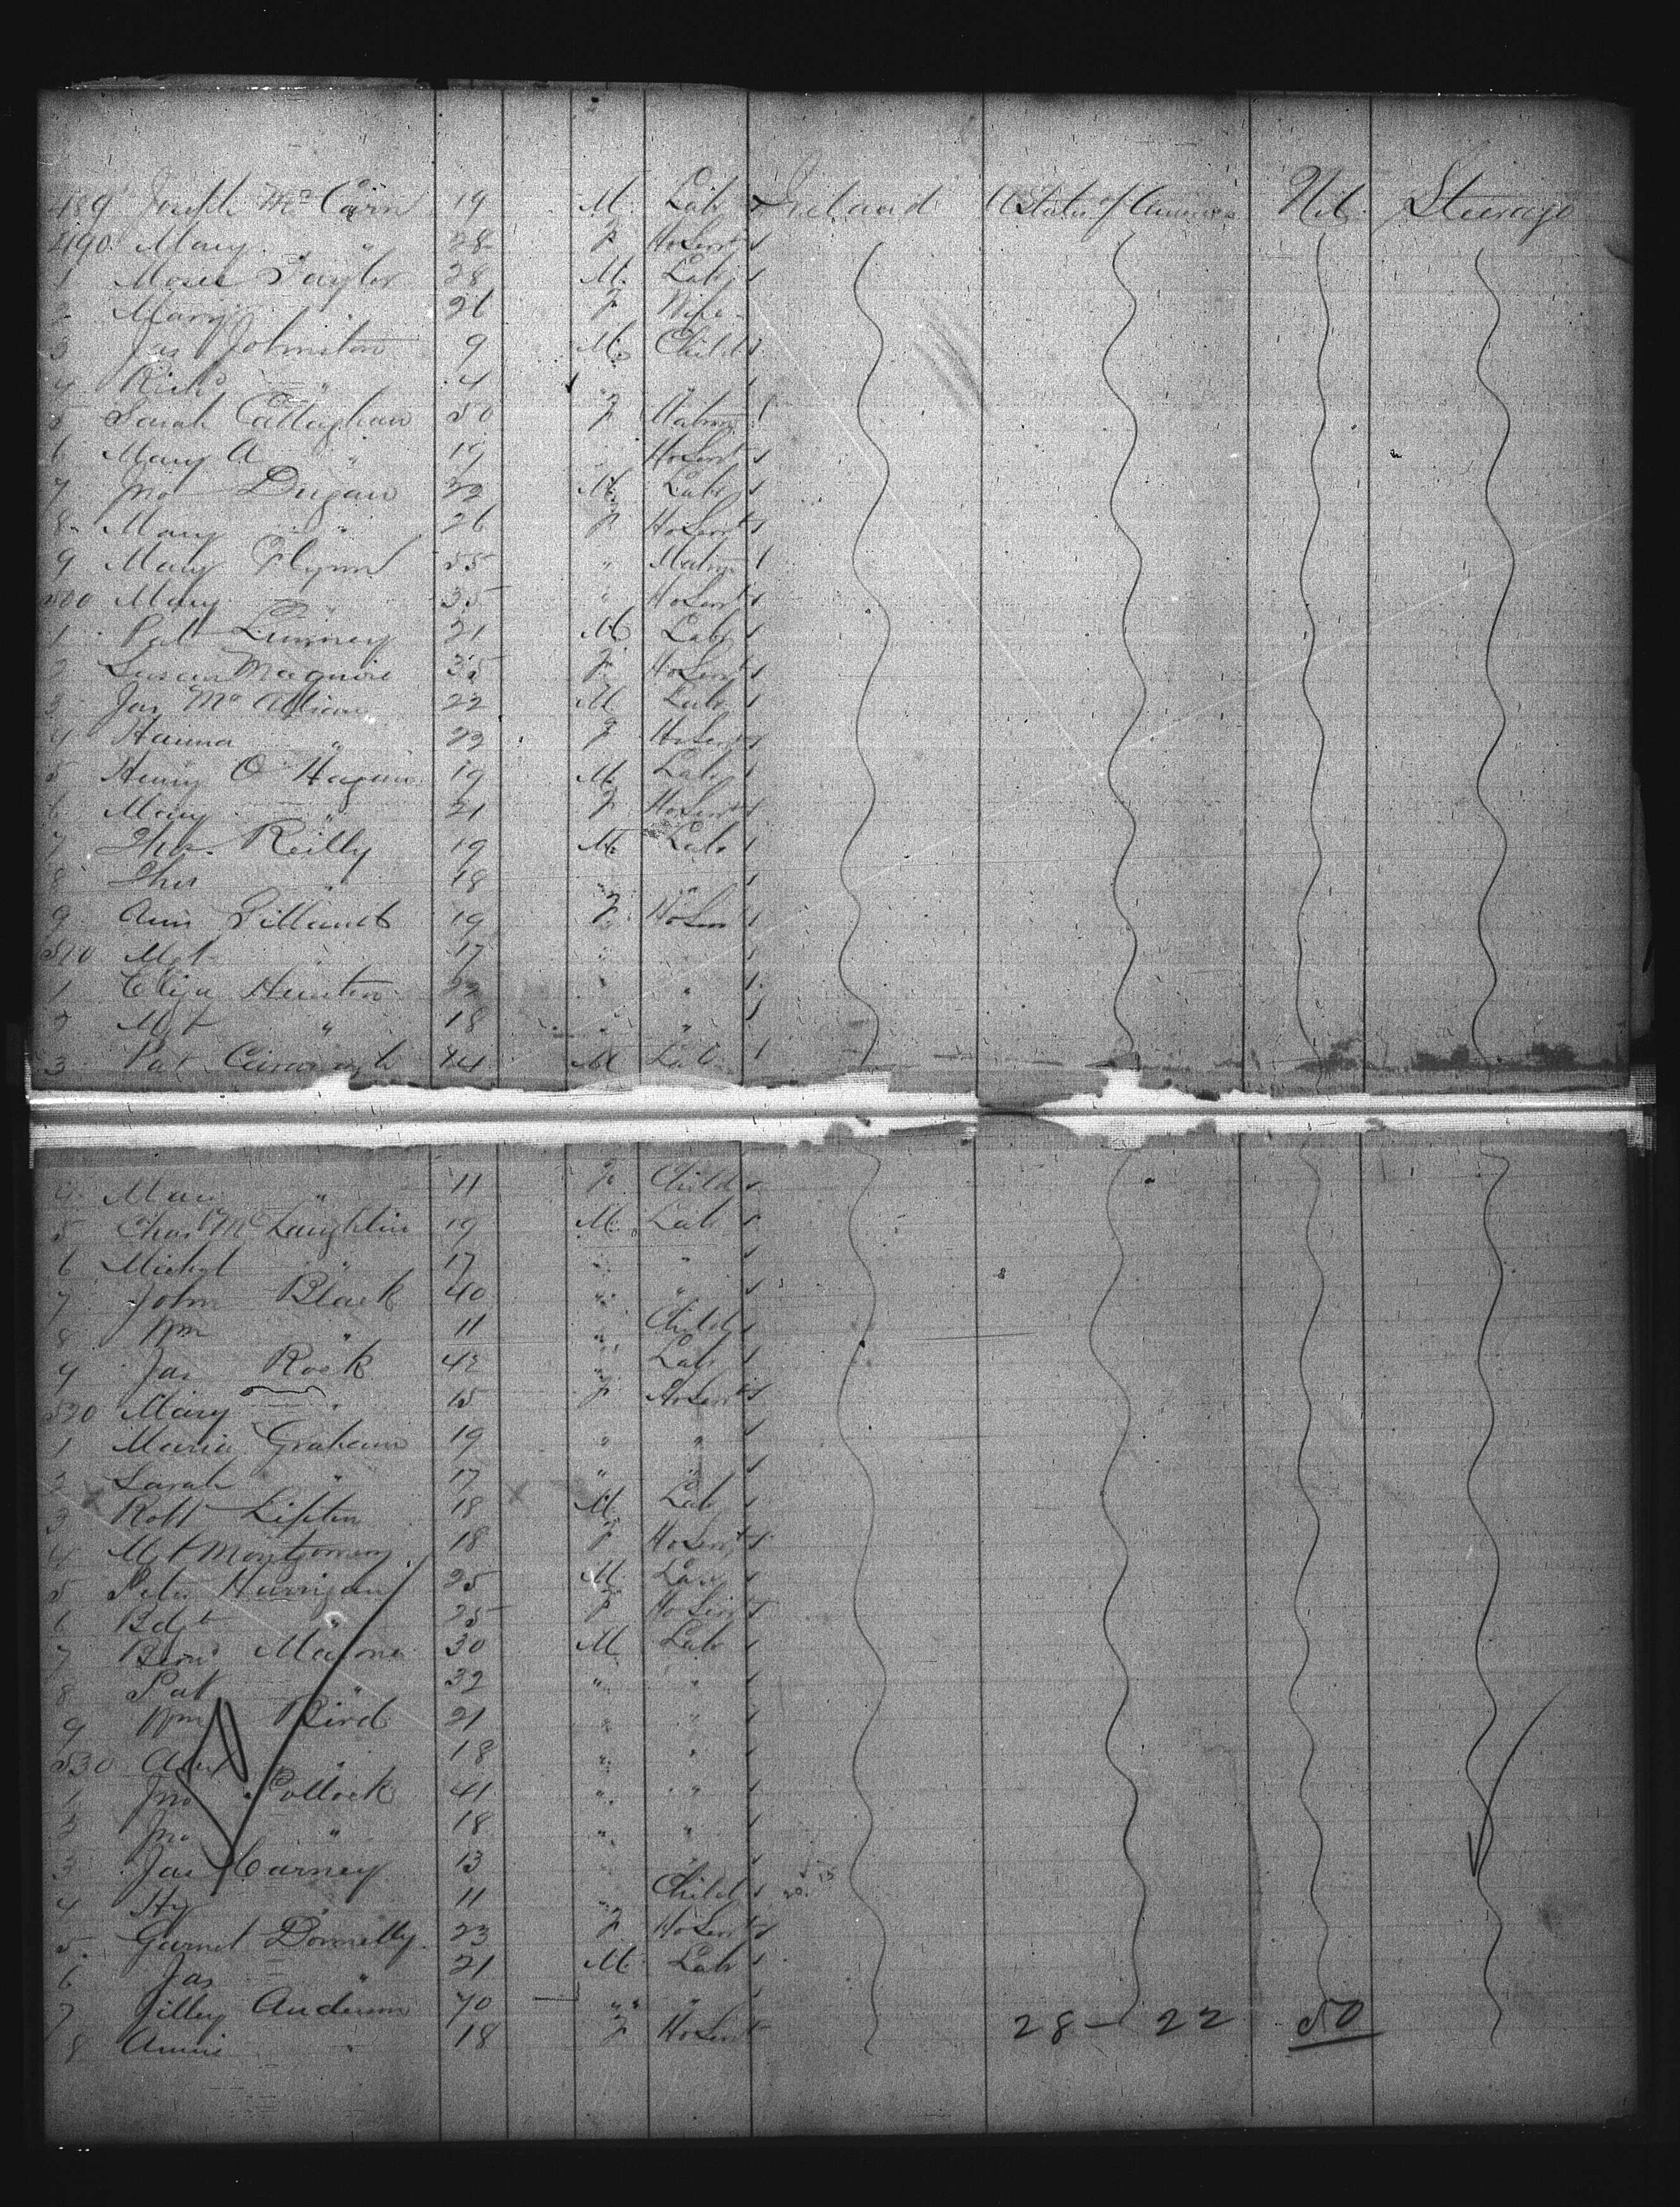 489 Joseph McCarn 19 M Lab Ireland U States of America Nil Steerage
490 Mary " 28 F HoServt
1 Moses Taylor 28 M Lab
2 Mary " 26 F Wife
3 Jas Johnston 9 M Child
4 Richd " 4 " "
5 Sarah Callaghan 50 F Matron
6 Mary A " 19 " HoServt
7 Jno Dugan 22 M Lab
8 Mary " 26 F HoServt
9 Mary Flynn 55 " Matron
500 Mary " 35 " HoServt
1 Pat 21 M Lab
2 Susan Maguire 35 F HoServt
3 Jas 22 M Lab
4 Hanna " 22 F HoServt
5 Henry O Hagan 19 M Lab
6 Mary " 21 F HoServt
7 Thos. Reilly 19 M Lab
8 Thos " 18 " "
9 Ann 19 F HoServ
510 Mgt " 17 " "
1 Eliza Hunter 22 " "
2 Mgt " 18 " "
3 Pat 44 M Lab
4 Mary " 11 F Child
5 Chas McLaughlin 19 M Lab
6 Michl " 17 " "
7 John Black 40 " "
8 Wm " 11 " Child
9 Jas Rock 42 " Lab
520 Mary " 15 F HoServt
1 Maria Graham 19 " "
2 Sarah " 17 " "
3 Robt 18 M Lab
4 Mgt Montgomery 18 F HoServt
5 Peter Harrigan 25 M Lab
6 Bdgt " 25 F HoServt
7 Bernd Malone 30 M Lab
8 Pat " 32 " "
9 Wm Bird 21 " "
530 Alex " 18 " "
1 Jno Pollock 41 " "
2 Jno " 18 " "
3 Jas Carney 13 " "
4 Hy " 11 " Child
5 Garnet Donnelly 23 F HoServt
6 Jas " 21 M Lab
7 Anderson 70 " "
8 Annie " 18 F HoServt
28 — 22 50